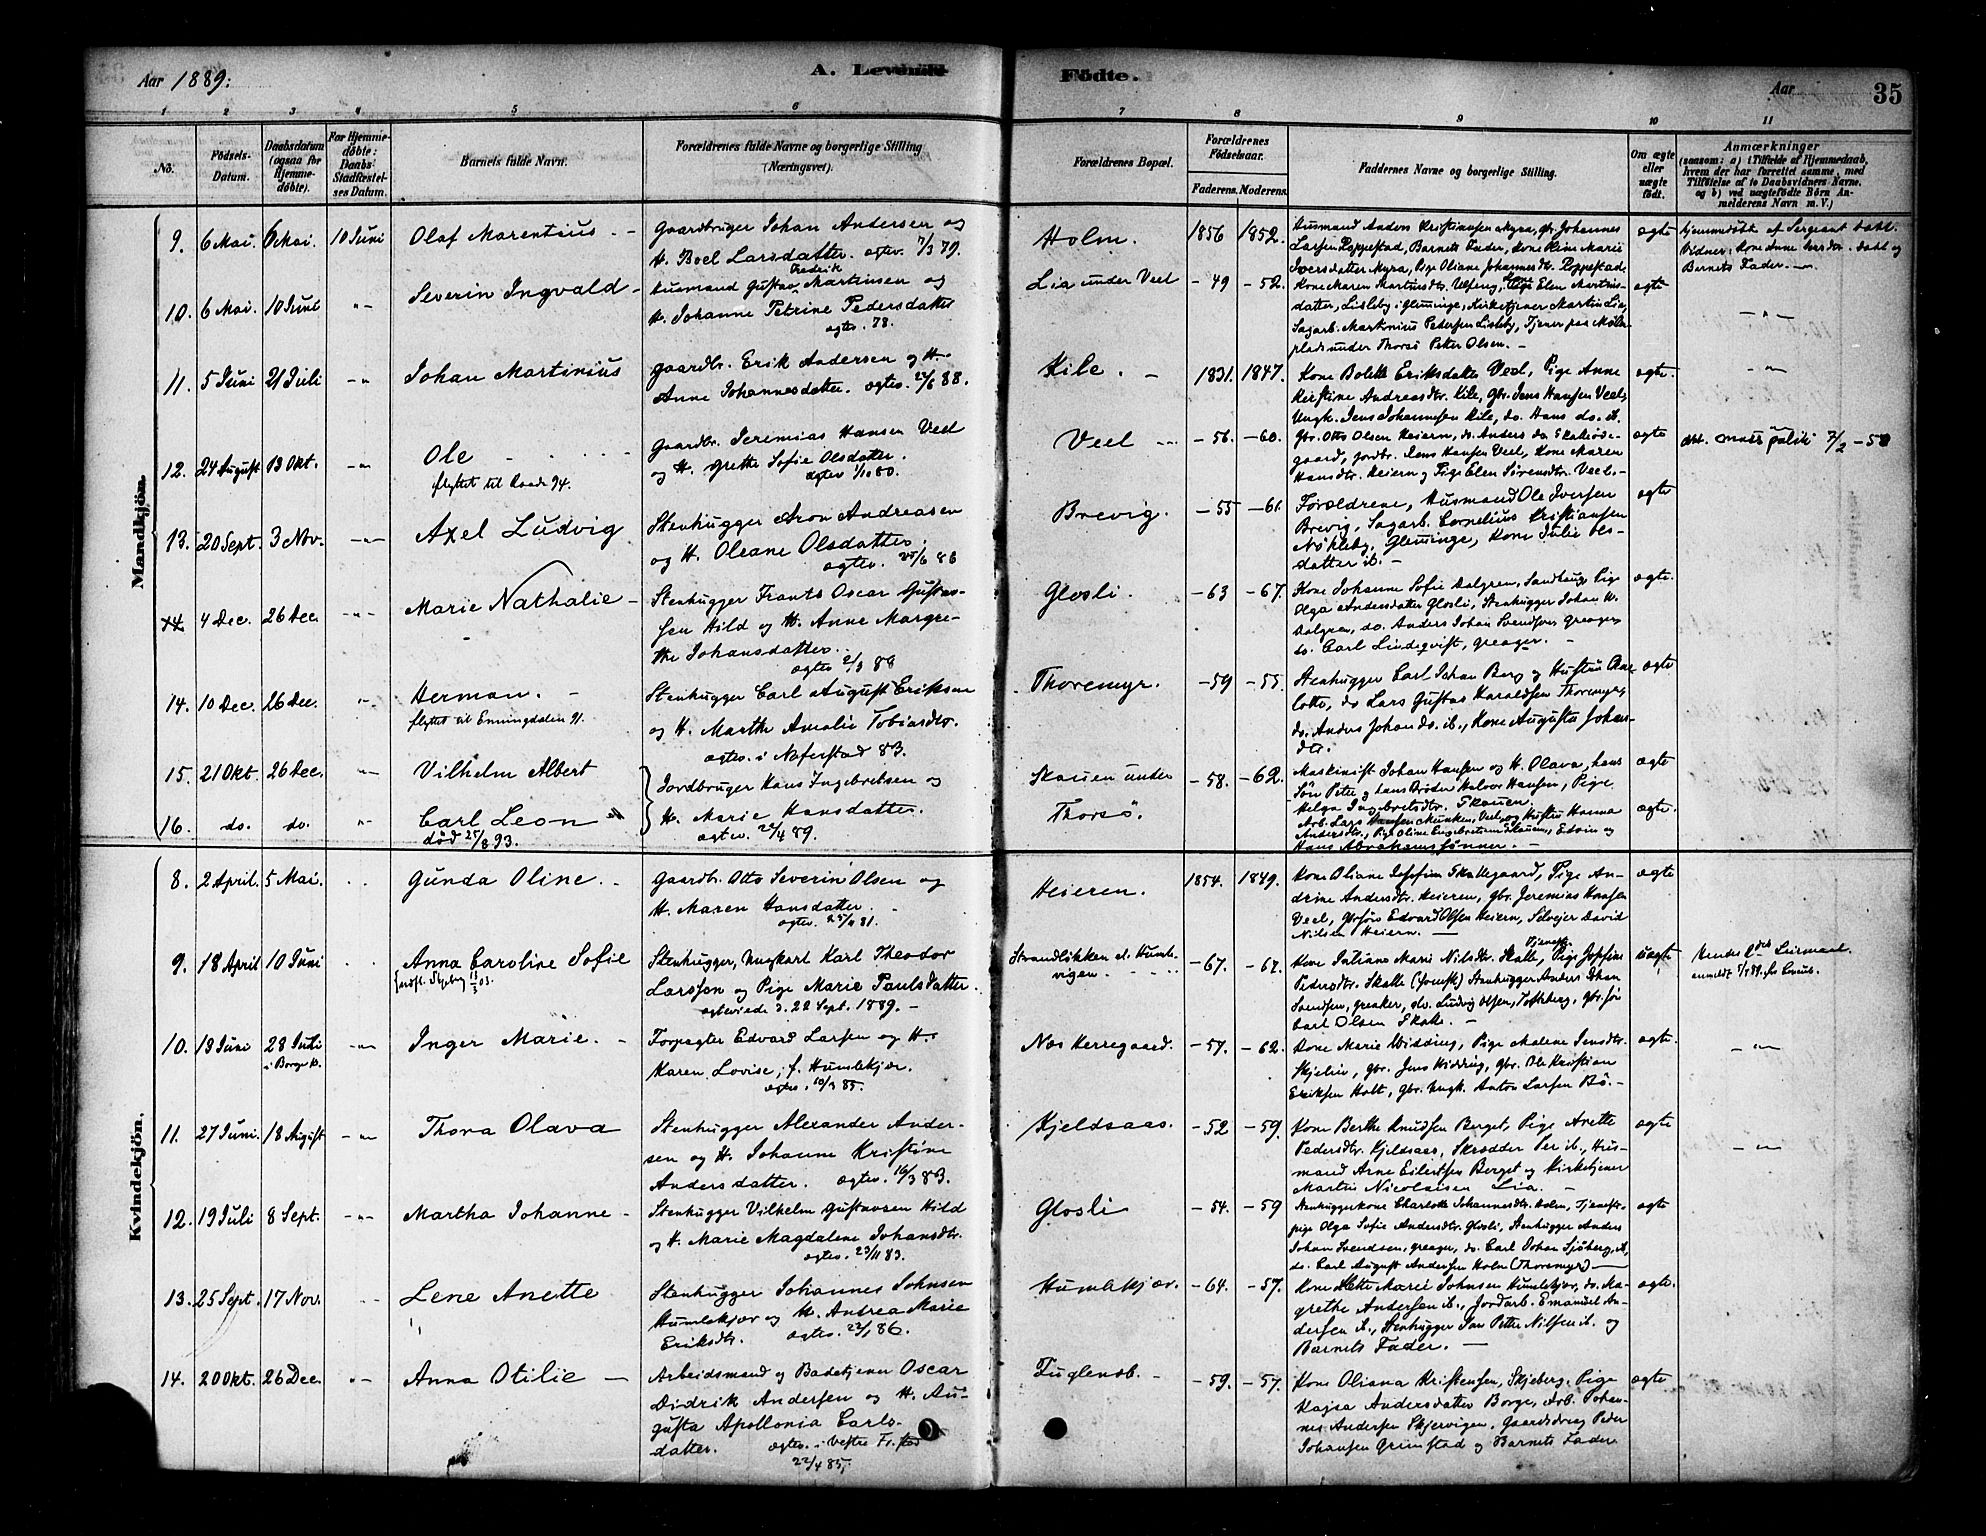 Aar 1889.
A. Levende
Födte.
Aar
35
1 2 3 4 5 6 7 8 9 10 11
No.
Födsels-Datum.
Daabsdatum (ogsaa for Hjemmedøbte).
For Hjemmedøbte: Daabs-Stadfæstelses Datum.
Barnets fulde Navn.
Forældrenes fulde Navne og borgerlige Stilling (Næringsvei).
Forældrenes Bopæl.
Forældrenes Fødselsaar.
Faderens. Moderens.
Faddernes Navne og borgerlige Stilling.
Om ægte eller uægte födt.
Anmærkninger
(saasom: a) i Tilfælde af Hjemmedaab, hvem der har forrettet samme, med Tilföielse af to Daabsvidners Navne, og b) ved uægtefödte Börn Anmelderens Navn m. V.)
Mandkjön.
9. 6 Mai. 6 Mai. 10 Juni Olaf Marentius
Gaardbruger Johan Andersen og
H. Boel Larsdatter. ægtev. 7/3 79.
Holm. 1856 1852.
Husmand Anders Kristiansen Myra, gbr. Johannes
Larsen Poppestad, Barnets Fader, Kone Oline Marie
Iversdatter Myra, Pige Oliane Johannesdtr. Poppestad.
ægte
Hjemmedøbt af Sergeant Dahl.
Vidner: Kone Anne Dahl og
Barnets Fader.
10. 6 Mai. 10 Juni Severin Ingvald
Husmand Gustav Fredrik Martinsen og
H. Johanne Petrine Pedersdatter
ægtev. 78.
Lia under Veel - 49 - 52.
Kone Maren Martinsdtr. Pige Elen Martinsdatter, Lisleby i Glemminge, Kirketjener Martin Lia,
Sagarb. Martinius Pedersen Lisleby, Tjener paa
plads under Thorsø Peter Olsen.
ægte
11. 5 Juni 21 Juli Johan Martinius
Gaardbr. Erik Andersen og H.
Anne Johannesdatter. ægtev. 88.
Kile. 1831. 1847.
Kone Bolette Eriksdatter Veel, Pige Anne
Kirstine Andreasdtr. Kile, Gbr. Jens Hansen Veel,
Ungk. Jens Johannesen Kile, do. Hans do. ib.
ægte.
12. 24 August 13 Okt. Ole
flyttet til Raade 94.
Gaardbr. Jeremias Hansen Veel
og H. Grethe Sofie Olsdatter.
ægtev. 1/10 80.
Veel - 56. - 60.
Gbr. Otto Olsen Heiern, do. Anders do.
gaard, Jordbr. Jens Hansen Veel, Kone Maren
Hansdtr. Heiern og Pige Elen Sørensdtr. Veel.
ægte
7/2 - 58
13. 20 Sept. 3 Nov. Axel Ludvig
Stenhugger Aron Andreasen
og H. Oleane Olsdatter.
ægtev. 25/6 86
Brevig. - 55 - 61.
Forældrene, Husmand Ole Iversen
Brevig, Sagarb. Cornelius Kristiansen
Nökleby, Glemminge, Kone Julie Olsdatter ib.
ægte
14 4 Dec. 26 Dec. Marie Nathalie
Stenhugger Frants Oscar Gustafsen Hild og H. Anne Margrethe Johansdatter.
ægtev. 2/3 89
Glosli. - 63 - 67.
Kone Johanne Sofie Dalgren, Pige
Olga Andersdatter Glosli, Stenhugger Johan W.
Dalgren, do. Anders Johan Svendsen, Greager,
do. Carl Lindqvist, Greager.
ægte.
14. 10 Dec. 26 Dec. Herman.
flyttet til Enningdalen 91.
Stenhugger Carl August Eriksen
og H. Marthe Amalie Tobiasdtr.
ægtev. i Naverstad 83.
Thoremyr. - 59 - 55.
Stenhugger Carl Johan Berg og Hustru
do. Lars Gustaf Haraldsen Thoremyr,
do. Anders Johan do. ib., Kone Augusta Johansdtr.
ægte
15. 21 Okt. 26 Dec. Vilhelm Albert
16. do. do. Carl Leon
död 25/8 93.
Jordbruger Hans Ingebretsen og
H. Marie Hansdatter.
ægtev. 22/4 89.
Skauen under
Thorsö.
- 58. - 62.
Maskinist Johan Hansen og H. Olava, hans
Sön Peter og hans Broder Halvor Hansen, Pige
Helga Ingebretsdtr. Skauen.
Arb. Lars Hansen Munken, Veel, og Hustru Hanna
Andersdtr., Pige Oline Engebretsen Skauen, Edvin og
Hans Abrahamssønner.
ægte
ægte.
Kvindekjön.
8. 2 April. 5 Mai. Gunda Oline.
Gaardbr. Otto Severin Olsen og
H. Maren Hansdatter.
ægtev. 81.
Heieren. 1854. 1849.
Kone Oliane Josefine Skallegaard, Pige Andrine Andersdtr. Heieren, Gbr. Jeremias Hansen
Veel, Gbrsön Edvard Olsen Heiern, Selveier David
Nilsen Heiern.
ægte
9. 18 April 10 Juni Anna Caroline Sofie
Stenhugger, Ungkarl Karl Theodor
Larsson og Pige Marie Paulsdatter.
ægteviede d. 22 Sept. 1889.
Strandløkken u. Humlevigen.
- 67. - 62.
Kone Juliane Marie Nilsdtr. Skalle, Pige Josefine
Pedersdtr. Skalle, Stenhugger Anders Johan
Svendsen, Greaker, do. Ludvig Olsen, Torsberg, Gbr.sön
Carl Olsen Skalle.
uægte
Hendes 1ste Leiermaal.
10. 13 Juni 28 Juli i Borge K. Inger Marie.
Forpagter Edvard Larsen og H.
Karen Lovise, f. Humlekjær.
ægtev. 10/3 85.
Næs Herregaard. - 57. - 62.
Kone Marie Widding, Pige Malene Jensdtr.
Skjelin, Gbr. Jens Widding, Gbr. Ole Kristian
Eriksen Holt, Gbr. Ungk. Anton Larsen Bö.
ægte.
11. 27 Juni. 18 August Thora Olava
Stenhugger Alexander Andersen og H. Johanne Kristine
Andersdatter. ægtev. 16/3 83.
Kjeldsaas. - 52 - 59.
Kone Berthe Knudsen Berget, Pige Anette
Pedersdtr. Kjeldsaas, Skrædder Per ib., Husmand Arne Eilertsen Berget og Kirketjener
Martin Nicolaisen Lia.
ægte
12. 19 Juli 8 Sept. Martha Johanne
Stenhugger Vilhelm Gustavsen Hild
og H. Marie Magdalene Johansdtr.
ægtev. 23/11 83.
Glosli - 54. - 59
Stenhuggerkone Charlotte Johannesdtr. Holm, Tjenestepige Olga Sofie Andersdtr. Glosli, Stenhugger Anders
Johan Svendsen, Greager, do. Carl Johan Sjöberg,
do. Carl August Andersen Holm (Thoremyr)
ægte
13. 25 Sept. 17 Nov. Lene Anette
Stenhugger Johannes Johnsen
Humlekjær og H. Andrea Marie
Eriksdtr. ægtev. 22/1 86.
Humlekjær. - 64. - 57.
Kone Mette Marie Johnsen Humlekjær, do. Magrethe Andersen ib., Jordarb. Emanuel Andersen ib., Stenhugger Jan Petter Nilsen ib. og
Barnets Fader.
ægte.
14. 20 Okt. 26 Dec. Anna Otilie
Arbeidsmand og Badetjener Oscar
Didrik Andersen og H. Augusta Apollonia Carlsdatter. ægtev. i Vestre Fr.stad
22/4 85.
Fuglensb. - 59. - 57.
Kone Oliana Kristensen, Skjeberg, Pige
Kajsa Andersdatter Borge, Arb. Johannes Andersen Skjærvigen, Gaardsdreng Peder
Johansen Grimstad og Barnets Fader
ægte